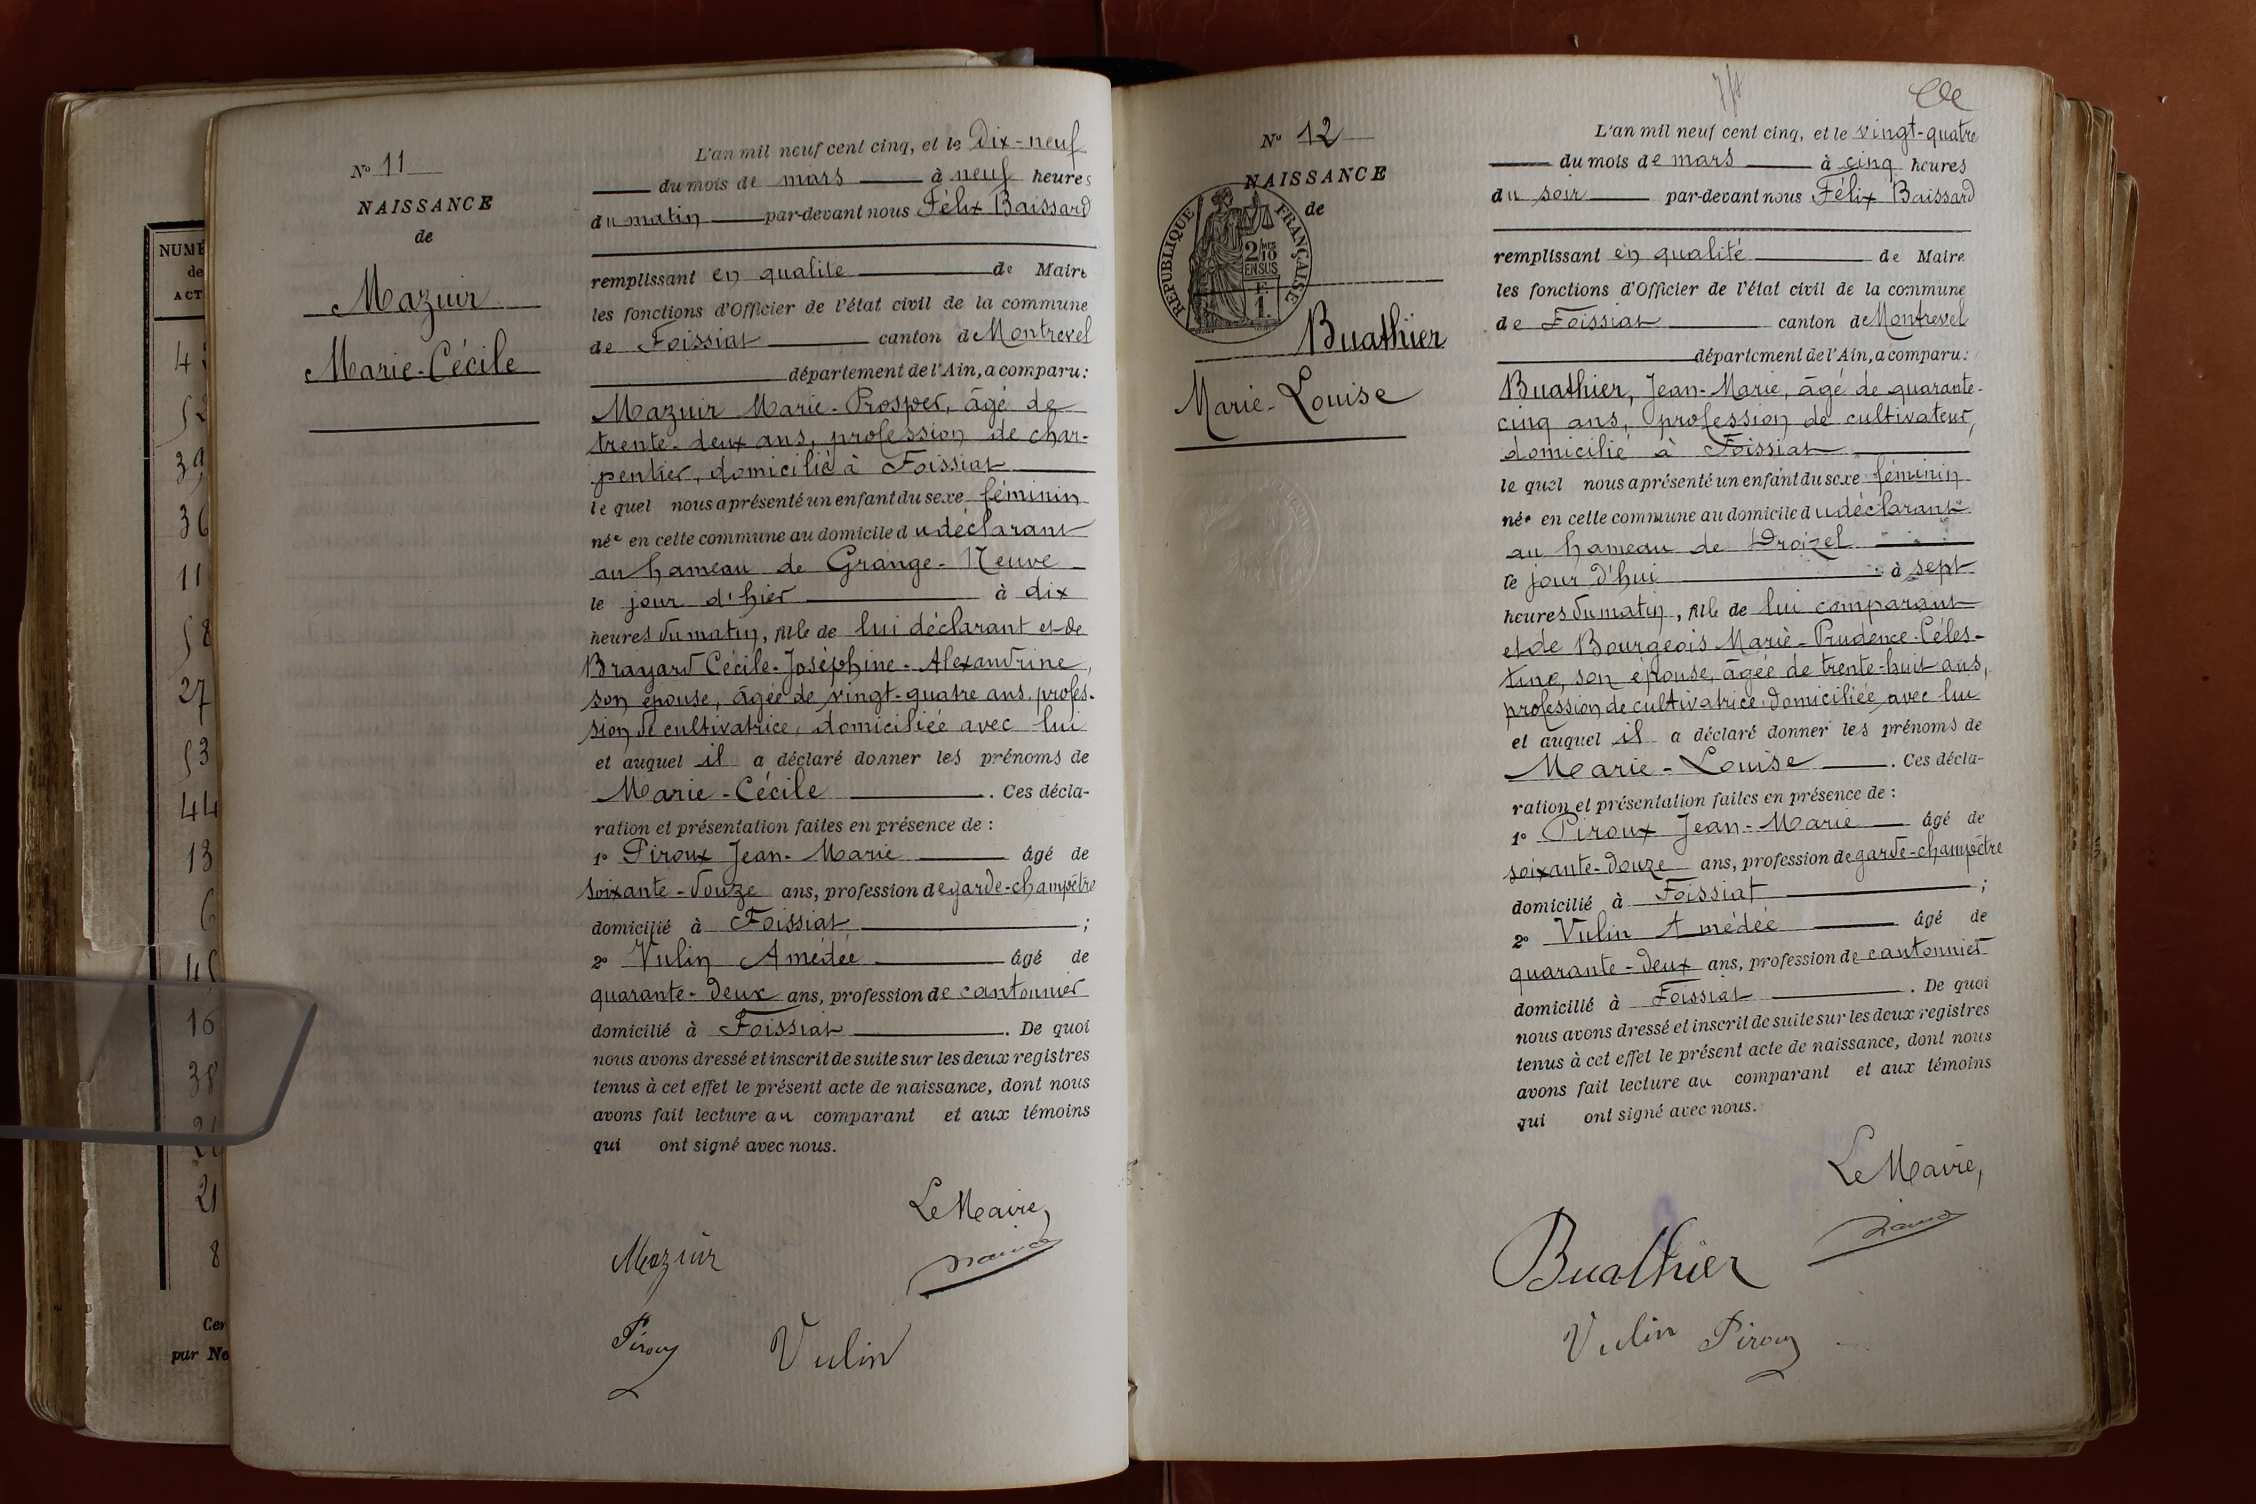 NUMÉ
de
ACT
4
52
39
36
11
58
27
53
44
13
6
45
16
38
21
8
Cer
par No
No 11
NAISSANCE
de
Mazuir
Marie-Cécile
L'an mil neuf cent cinq, et le Dix-neuf
du mois de mars à neuf heures
du matin par-devant nous Félix Baissard
remplissant en qualité de Maire
les fonctions d'Officier de l'état civil de la commune
de Foissiat canton de Montrevel
département de l'Ain, a comparu:
Mazuir Marie-Prosper, âgé de
trente-deux ans, profession de char-
pentier, domicilié à Foissiat
le quel nous a présenté un enfant du sexe féminin
née en cette commune au domicile du déclarant
au hameau de Grange-Neuve
le jour d'hier à dix
heures du matin, fille de lui déclarant et de
Brayard Cécile-Joséphine-Alexandrine,
son épouse, âgée de vingt-quatre ans, profes-
sion de cultivatrice, domiciliée avec lui
et auquel il a déclaré donner les prénoms de
Marie-Cécile. Ces décla-
ration et présentation faites en présence de :
1o Piroux Jean-Marie âgé de
soixante-douze ans, profession de garde-champêtre
domicilié à Foissiat ;
2o Vulin Amédée âgé de
quarante-deux ans, profession de cantonnier
domicilié à Foissiat. De quoi
nous avons dressé et inscrit de suite sur les deux registres
tenus à cet effet le présent acte de naissance, dont nous
avons fait lecture au comparant et aux témoins
qui ont signé avec nous.
Le Maire,
Mazuir
Piroux
Vulin
No 12
NAISSANCE
de
REPUBLIQUE FRANÇAISE
2/10 EN SUS
F. 1.
Buathier
Marie-Louise
L'an mil neuf cent cinq, et le vingt-quatre
du mois de mars à cinq heures
du soir par-devant nous Félix Baissard
remplissant en qualité de Maire
les fonctions d'Officier de l'état civil de la commune
de Foissiat canton de Montrevel
département de l'Ain, a comparu:
Buathier, Jean-Marie, âgé de quarante-
cinq ans, profession de cultivateur,
domicilié à Foissiat
le quel nous a présenté un enfant du sexe féminin
née en cette commune au domicile du déclarant
au hameau de Droizel
le jour d'hui à sept
heures du matin, fille de lui comparant
et de Bourgeois Marie-Prudence-Céles-
tine, son épouse, âgée de trente-huit ans,
profession de cultivatrice domiciliée avec lui
et auquel il a déclaré donner les prénoms de
Marie-Louise. Ces décla-
ration et présentation faites en présence de :
1o Piroux Jean-Marie âgé de
soixante-douze ans, profession de garde-champêtre
domicilié à Foissiat ;
2o Vulin Amédée âgé de
quarante-deux ans, profession de cantonnier
domicilié à Foissiat. De quoi
nous avons dressé et inscrit de suite sur les deux registres
tenus à cet effet le présent acte de naissance, dont nous
avons fait lecture au comparant et aux témoins
qui ont signé avec nous.
Le Maire,
Buathier
Vulin Piroux